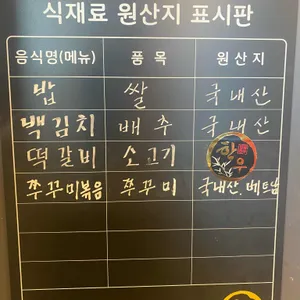 식재료 원산지 표시판
음식명(메뉴) 품 목 원 산 지
밥 쌀 국내산
백김치 배추 국내산
떡갈비 소고기 한우
쭈꾸미볶음 쭈꾸미 국내산, 베트남